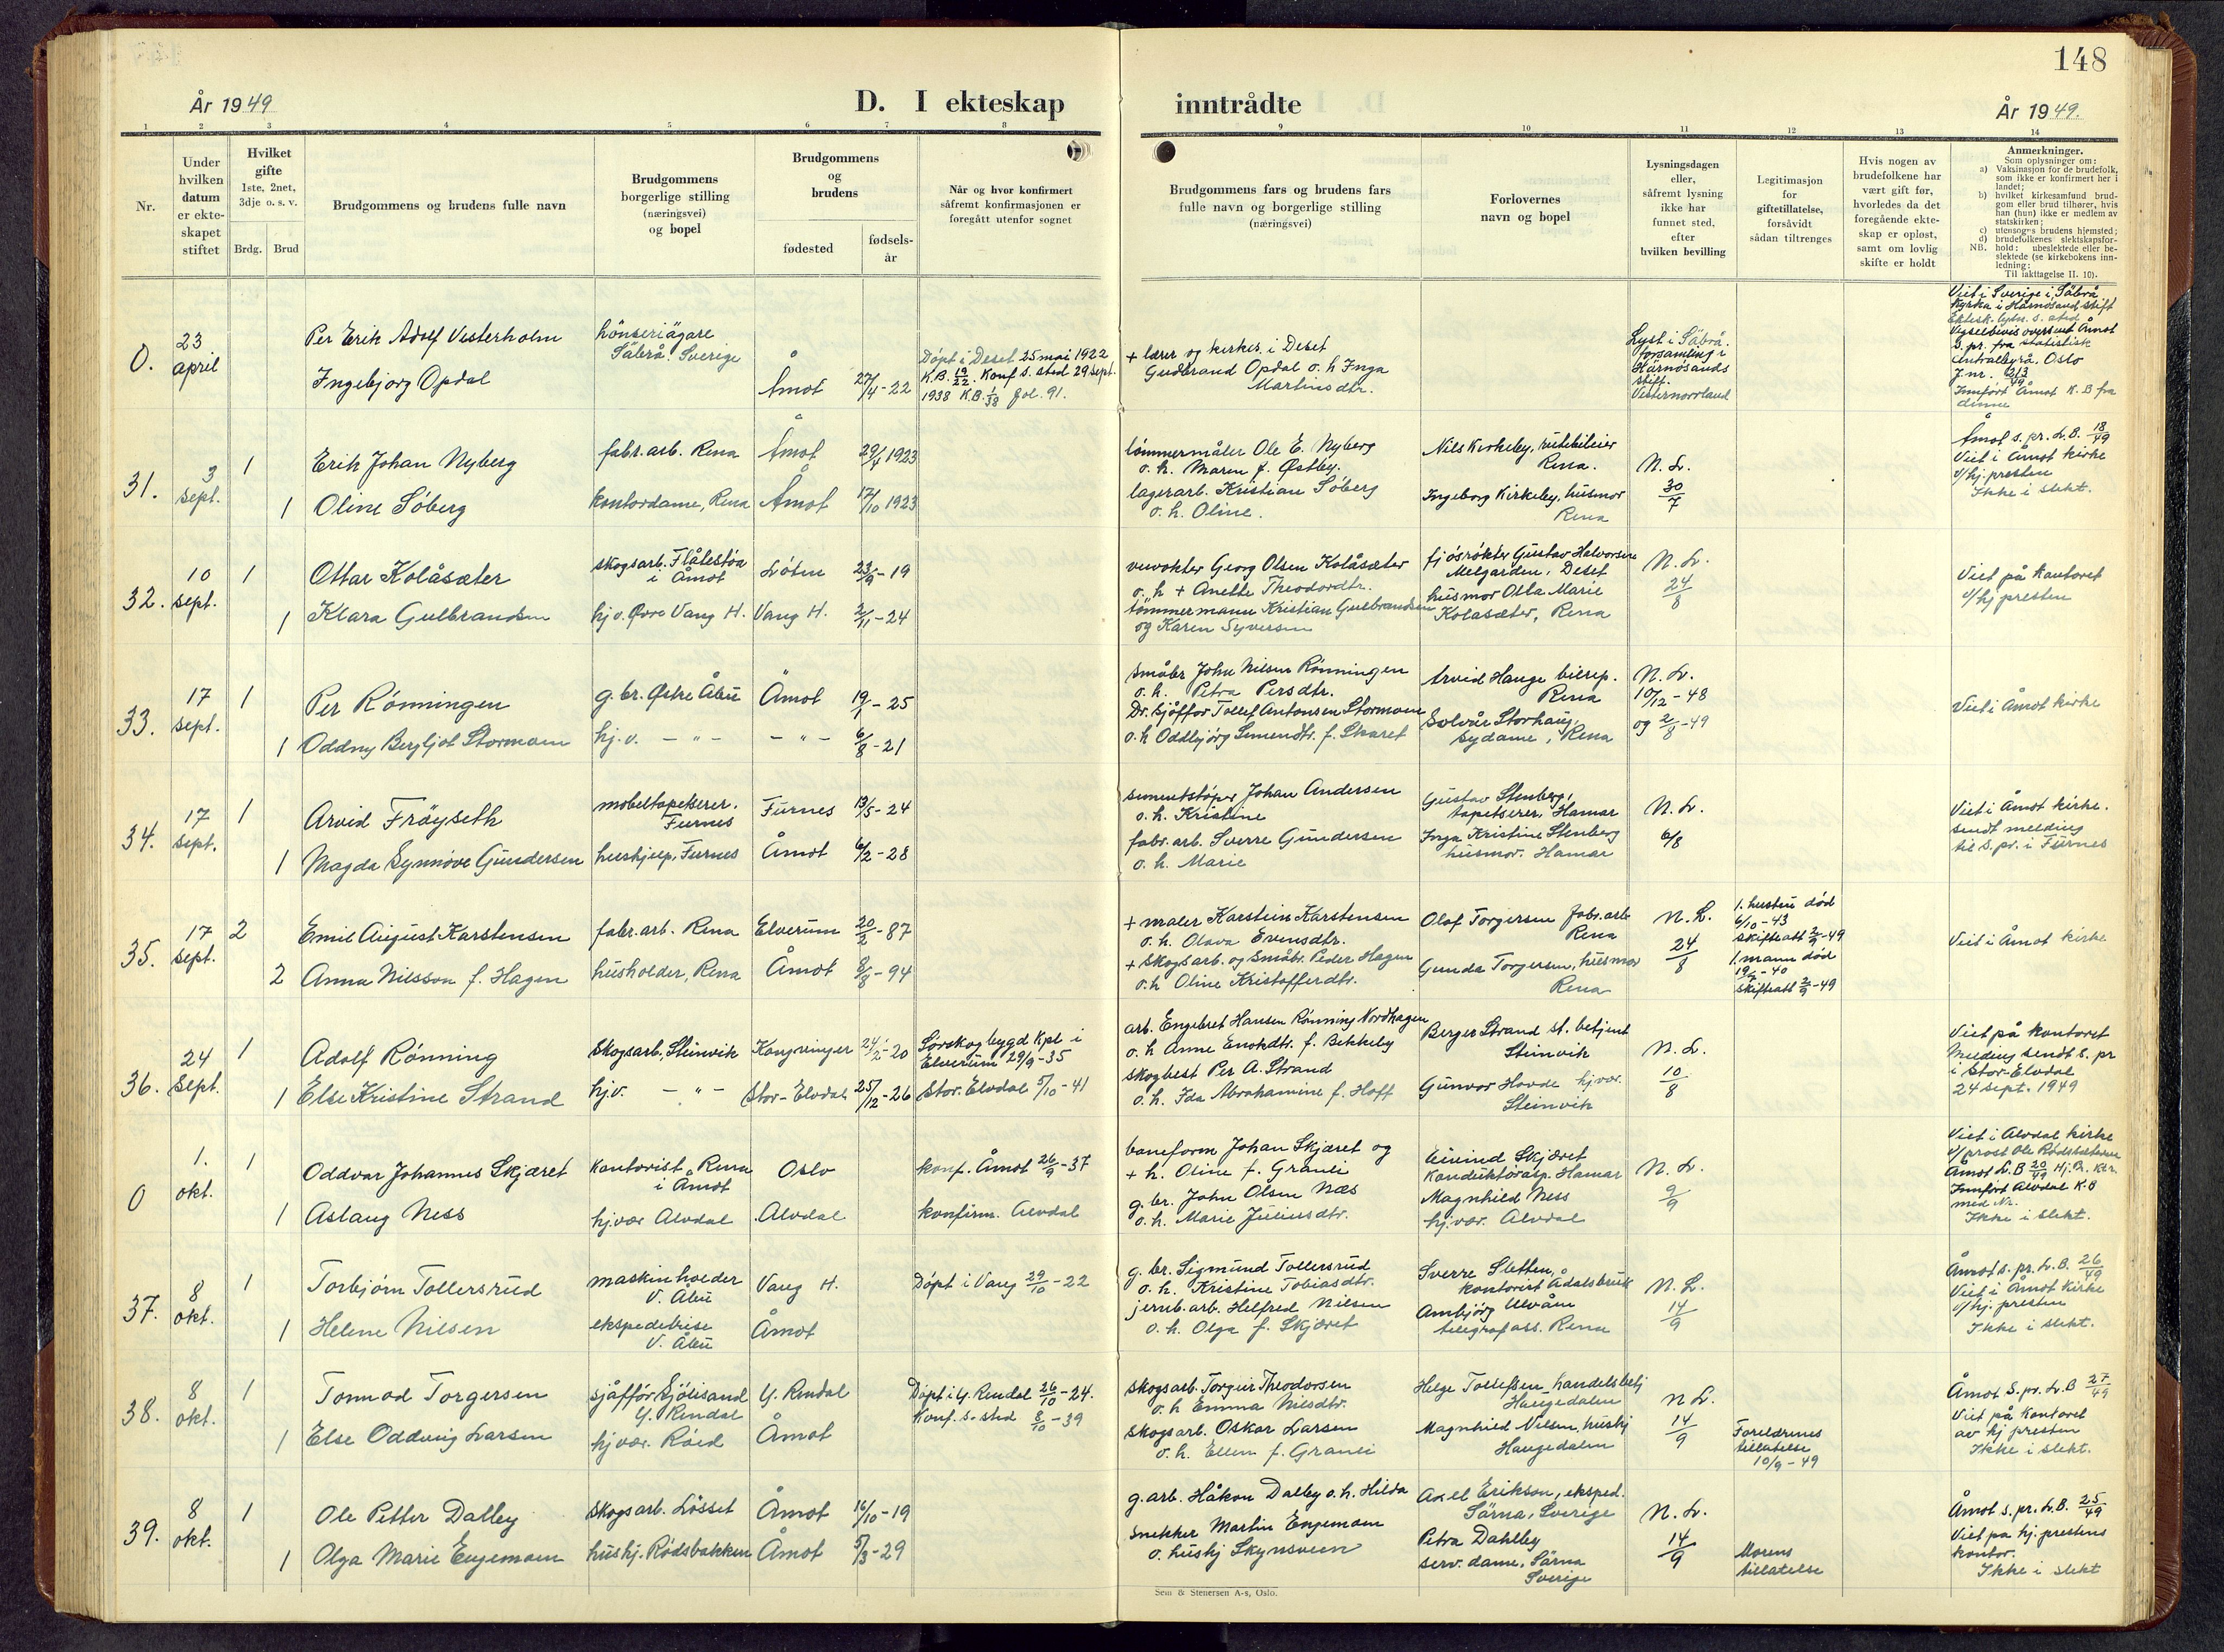 148
År 1949
D. I ekteskap
inntrådte
År 1949.
1 2 3 4 5 6 7 8
9 10 11 12 13 14
Nr.
Under
hvilken
datum
er ekte-
skapet
stiftet
Hvilket
gifte
1ste, 2net,
3dje o. s. v.
Brdg. Brud
Brudgommens og brudens fulle navn
Brudgommens
borgerlige stilling
(næringsvei)
og bopel
Brudgommens
og
brudens
fødested
fødsels-
år
Når og hvor konfirmert
såfremt konfirmasjonen er
foregått utenfor sognet
Brudgommens fars og brudens fars
fulle navn og borgerlige stilling
(næringsvei)
Forlovernes
navn og bopel
Lysningsdagen
eller,
såfremt lysning
ikke har
funnet sted,
efter
hvilken bevilling
Legitimasjon
for
giftetillatelse,
forsåvidt
sådan tiltrenges
Hvis nogen av
brudefolkene har
vært gift før,
hvorledes da det
foregående ekte-
skap er opløst,
samt om lovlig
skifte er holdt
Anmerkninger.
Som oplysninger om:
a) Vaksinasjon for de brudefolk,
som ikke er konfirmert her i
landet;
b) hvilket kirkesamfund brud-
gom eller brud tilhører, hvis
han (hun) ikke er medlem av
statskirken;
c) utensogns brudens hjemsted;
d) brudefolkenes slektskapsfor-
NB. hold: ubeslektede eller be-
slektede (se kirkebokens inn-
ledning:
Til iakttagelse II. 10).
0.
23
april
Per Erik Adolf Vesterholm
Ingebjorg Opdal
hönseriägare
Säbrå. Sverige
Åmot
27/4-22
Döpt i Deset 25 mai 1922
K.B. 19/22. Konf s. sted 29 sept.
1938 K.B. 1/38 fol. 91.
+ lærer og kirkes. i Deset
Gudbrand Opdal o. h Inga
Martinsdtr.
Lyst i Säbrå.
forsamling i
Härnösands
stift.
Västernorrland
Viet i Sverige i Säbrå
Kyrka i Härnösand stift
Vigselbevis oversent Åmot
s. pr. fra statistisk
centralbyrå. Oslo
J.nr. 213/49
Innført Åmot K.B fra
denne
31.
3
sept.
1
1
Erik Johan Nyberg
Oline Söberg
fabr. arb. Rena
kontordame, Rena
Åmot
Åmot
29/4 1923
17/10 1923
tömmermåler Ole E. Nyberg
o. h. Maren f. Østby.
lagerarb. Kristian Söberg
o. h. Oline.
Nils Kirkeby, rutebileier
Rena.
Ingeborg Kirkeby, husmor
Rena
N. L.
30/7
Åmot s. pr. L.B. 18/49
Viet i Åmot kirke
v/hj. presten
Ikke i slekt.
32.
10
sept.
1
1
Ottar Kolåsæter
Klara Gulbrandsen
skogsarb. Flåtestøa
i Åmot
hj v. Øvre Vang H.
Löten
Vang H.
23/9-19
2/11-24
Georg Olsen Kolåsæter
o. h + Anette Theodordtr.
tömmermann Kristian Gulbrandsen
og Karen Syversen
fjösrökter Gustav Halvorsen
Melgarden, Deset
husmor Otta Marie
Kolåsæter, Rena
N. L.
24/8
Viet på kontoret
v/hj presten
33.
17
sept.
1
1
Per Rönningen
Oddny Bergljot Stormoen
g. br. Østre Åbu
hj. v. - " -
Åmot
- " -
19/1-25
6/8-21
Småbr John Nilsen Rönningen
o. h. Petra Persdtr.
Dr. sjåffør Tollef Antonsen Stormoen
o. h Oddbjörg Simensdtr. f. Skaret
Arvid Hauge bilrep.
Rena
Solvår Storhaug,
sydame, Rena
N. L.
10/12-48
og 2/8-49
Viet i Åmot kirke
34.
17
sept.
1
1
Arvid Fröyseth
Magda Synnöve Gundersen
mobeltapetserer.
Furnes
hushjelp, Furnes
Furnes
Åmot
13/5-24
6/2-28
sementstöper Johan Andersen
o. h. Kristine
fabr. arb. Sverre Gundersen
o. h. Marie
Gustav Stenberg,
tapetserer, Hamar
Inga Kristine Stenberg
husmor. Hamar
N. L.
6/8
Viet i Åmot kirke.
Sendt melding
til s. pr. i Furnes
35.
17
sept.
2
2
Emil August Karstensen
Anna Nilsson f. Hagen
fabr. arb. Rena
husholder, Rena
Elverum
Åmot
20/2-87
8/8-94
+ maler Karstein Karstensen
o. h. Olava Evensdtr.
+ skogsarb. og småbr. Peder Hagen
o. h Oline Kristofferdtr.
Olaf Torgersen fabr. arb
Rena
Gunda Torgersen, husmor
Rena
N. L.
24/8
1. hustru död
6/10-43
skifteatt 2/9-49
1. mann död
-40
skifteatt 2/9-49
Viet i Åmot kirke
36.
24
sept.
1
1
Adolf Rönning
Else Kristine Strand
skogsarb, Steinvik
hj.v. - " -
Kongsvinger
Stor-Elvdal
24/2-20
25/12-26
Sörskogbygd Kpl i
Elverum 29/9-35
Stor. Elvdal 5/10-41
arb. Engebret Hansen Rönning Nordhagen
o. h Anne Enokdtr. f. Bekkeby
skogbest Per A. Strand
o. h. Ida Abrahamine f. Hoff
Berger Strand st. betjent
Steinvik
Gunvor Hovde hj.vær.
Steinvik
N. L.
10/8
Viet på kontoret
Melding sendt s. pr
i Stor-Elvdal
24 sept. 1949
0
1.
okt.
1
1
Oddvar Johannes Skjæret
Aslaug Ness
Kontorist, Rena
i Åmot
hjvær Alvdal
Oslo
Alvdal
konf. Åmot 26/9-37
konfirm. Alvdal
baneform Johan Skjæret og
+ h. Oline f. Granli
g. br. John Olsen Næs
o. h. Marie Juliusdtr.
Eivind Skjæret
Konduktörasp. Hamar
Magnhild Ness
hj.vær. Alvdal
N. L.
9/9
Viet i Alvdal kirke
v/prost Ole
Åmot L.B 20/49
Innført Alvdal K.B
med Nr.
Ikke i slekt.
37.
8
okt.
1
1
Torbjørn Tollersrud
Helene Nilsen
maskinholder
V. Åbu
ekspeditrise
V. Åbu
Vang H.
Åmot
Döpt i Vang 29/10-22
g. br. Sigmund Tollersrud
o. h. Kristine Tobiasdtr.
jernb. arb. Helfred Nilsen
o. h. Olga f. Skjæret
Sverre Sletten,
kontorist Ådalsbruk
Ambjörg Ulvåen
telegrafass. Rena
N. L.
14/9
Åmot s. pr. L.B. 26/49
Viet i Åmot kirke
v/hj. presten
Ikke i slekt.
38.
8
okt.
1
1
Tormod Torgersen
Else Oddveig Larsen
sjåffór Sjölisand
Y. Rendal
hjvær. Röed
Y. Rendal
Åmot
Döpt i Y. Rendal 26/10-24.
Konf. s. sted 8/10-39
skogsarb. Torgeir Theodorsen
o. h Emma Nilsdtr.
skogsarb. Oskar Larsen
o. h. Ellen f. Granli
Helge Tollefsen handelsbetj
Haugedalen
Magnhild Nilsen, hushj
Haugedalen
N L.
14/9
Foreldrenes
tillatelse
10/9-49
Åmot S. pr. L.B 27/49
Viet på kontoret
av hj presten
Ikke i slekt.
39.
8
okt.
1
1
Ole Petter Dalby
Olga Marie Engemoen
skogsarb. Lösset
hushj. Rödsbakken
Åmot
Åmot
16/10-19
5/3-29
g. arb. Håkon Dalby o. h. Hilda
snekker Martin Engemoen
o. hushj Skynsveen
Axel Erikson, eksped.
Särna, Sverige
Petra Dahlby
serv. dame, Särna
Sverige
N. L.
14/9
Morens
tillatelse
Åmot s. pr. L.B. 25/49
Viet på hj. prestens
kontor.
Ikke i slekt
Sem & Stenersen A-s, Oslo.